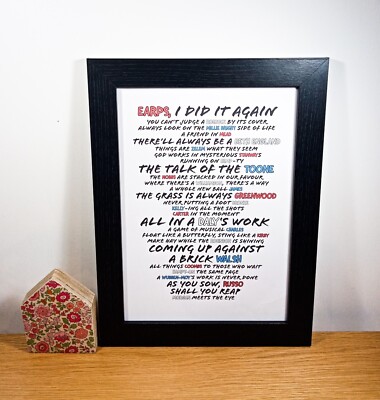 EARPS, I DID IT AGAIN
YOU CAN'T JUDGE A BY ITS COVER
ALWAYS LOOK ON THE MILLIE BRIGHT SIDE OF LIFE
A FRIEND IN MEAD
THERE'LL ALWAYS BE A BETH ENGLAND
THINGS ARE ZELEM WHAT THEY SEEM
GOD WORKS IN MYSTERIOUS
RUNNING ON -TY
THE TALK OF THE TOONE
THE NOBBS ARE STACKED IN OUR FAVOUR,
WHERE THERE'S A WILLIAMSON, THERE'S A WAY
A WHOLE NEW BALL JAMES
THE GRASS IS ALWAYS GREENWOOD
NEVER PUTTING A FOOT
KELLY-ING ALL THE SHOTS
CARTER IN THE MOMENT
ALL IN A DALY'S WORK
A GAME OF MUSICAL CHARLES
FLOAT LIKE A BUTTERFLY, STING LIKE A KIRBY
MAKE HAY WHILE THE IS SHINING
COMING UP AGAINST
A BRICK WALSH
ALL THINGS COOMBS TO THOSE WHO WAIT
THE SAME PAGE
A WUBBEN-MOY'S WORK IS NEVER DONE
AS YOU SOW, RUSSO
SHALL YOU REAP
MORGAN MEETS THE EYE